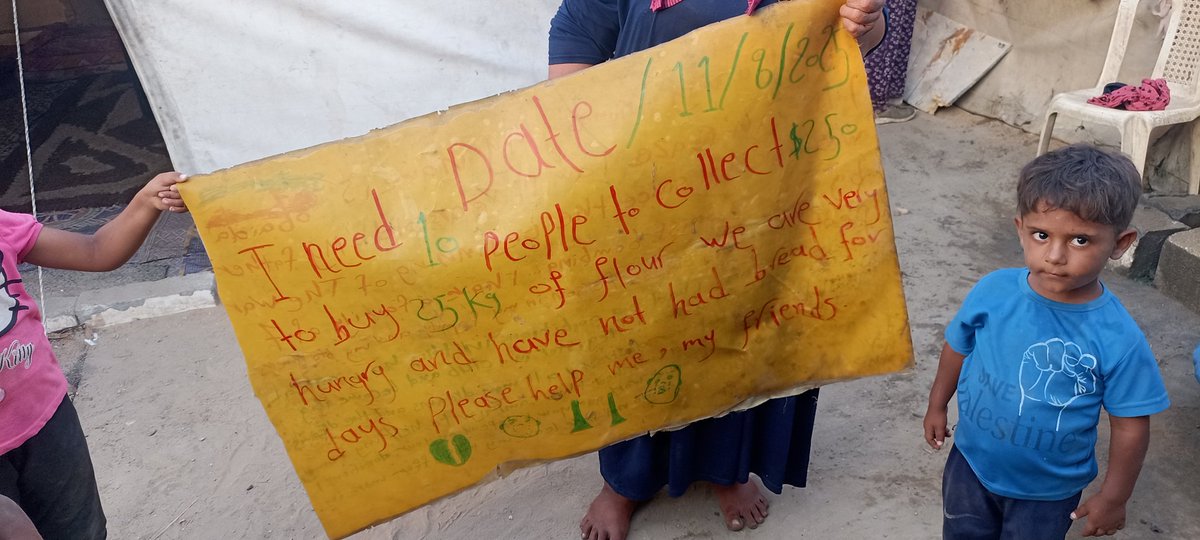 Date / 11/8/2025
I need 10 people to collect $250
to buy 25 Kg of flour we are very
hungry and have not had bread for
days please help me, my friends.
Kitty
Palestine